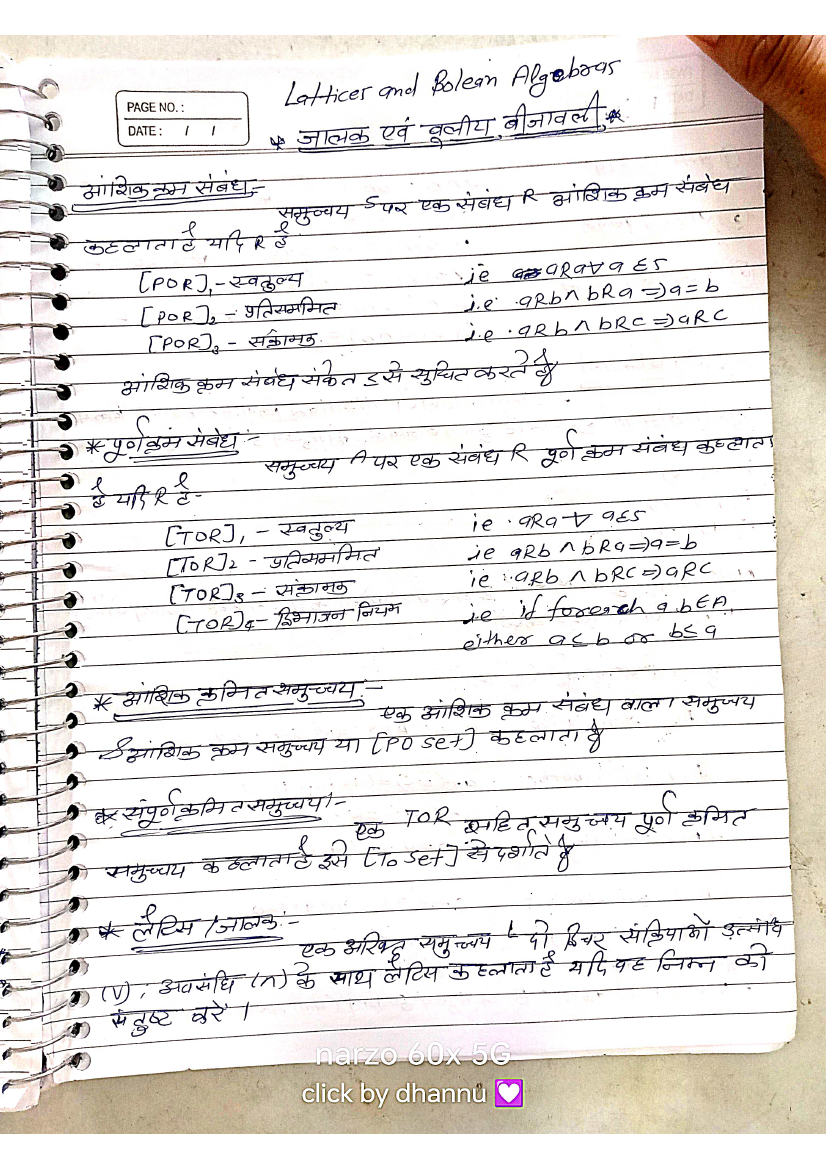 PAGE NO.:
DATE: / /
Lattices and Bolean Algebras
* जालक एवं बूलीय बीजावली *
आंशिक क्रम संबंध :-
समुच्चय S पर एक संबंध R आंशिक क्रम संबंध
कहलाता है यदि R है
[POR]₁ - स्वतुल्य i.e aRa ∀ a ∈ S
[POR]₂ - प्रतिसममित i.e. aRb ∧ bRa => a = b
[POR]₃ - संक्रामक i.e. aRb ∧ bRC => aRC
आंशिक क्रम संबंध संकेत ≤ से सुचित करते है
* पूर्ण क्रम संबंध :-
समुच्चय A पर एक संबंध R पूर्ण क्रम संबंध कहलाता
है यदि R है -
[TOR]₁ - स्वतुल्य ie. aRa ∀ a ∈ S
[TOR]₂ - प्रतिसममित ie aRb ∧ bRa => a = b
[TOR]₃ - संक्रामक ie aRb ∧ bRC => aRC
[TOR]₄ - द्विभाजन नियम i.e if foreach a, b ∈ A
either a ≤ b or b ≤ a
* आंशिक क्रमित समुच्चय :-
एक आंशिक क्रम संबंध वाला समुच्चय
S आंशिक क्रम समुच्चय या [PO set] कहलाता है
* संपूर्ण क्रमित समुच्चय :-
एक TOR सहित समुच्चय पूर्ण क्रमित
समुच्चय कहलाता है इसे [To set] से दर्शाते है
* लैटिस / जालक :-
एक अरिक्त समुच्चय L दो द्विचर संक्रियाओं उत्संधि
(V), अवसंधि (∧) के साथ लैटिस कहलाता है यदि वह निम्न को
संतुष्ट करें ।
narzo 60x 5G
click by dhannu 💟